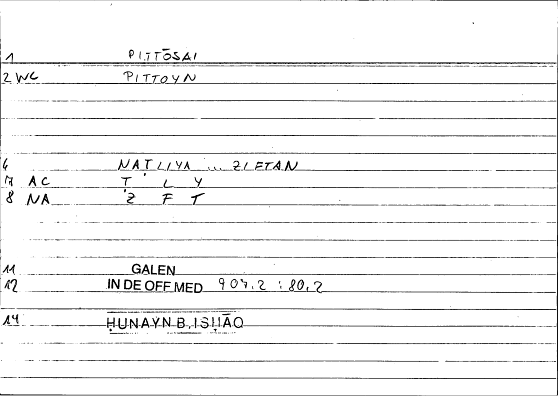 1 PITTŌSAI
2 WC PITTOYN
6 NAṬLIYA ... ZIFTAN
7 AC Ṭ L Y
8 NA Z F T
11 GALEN
12 IN DE OFF.MED 904.2 : 80,2
14 ḤUNAYN B. ISḤĀQ